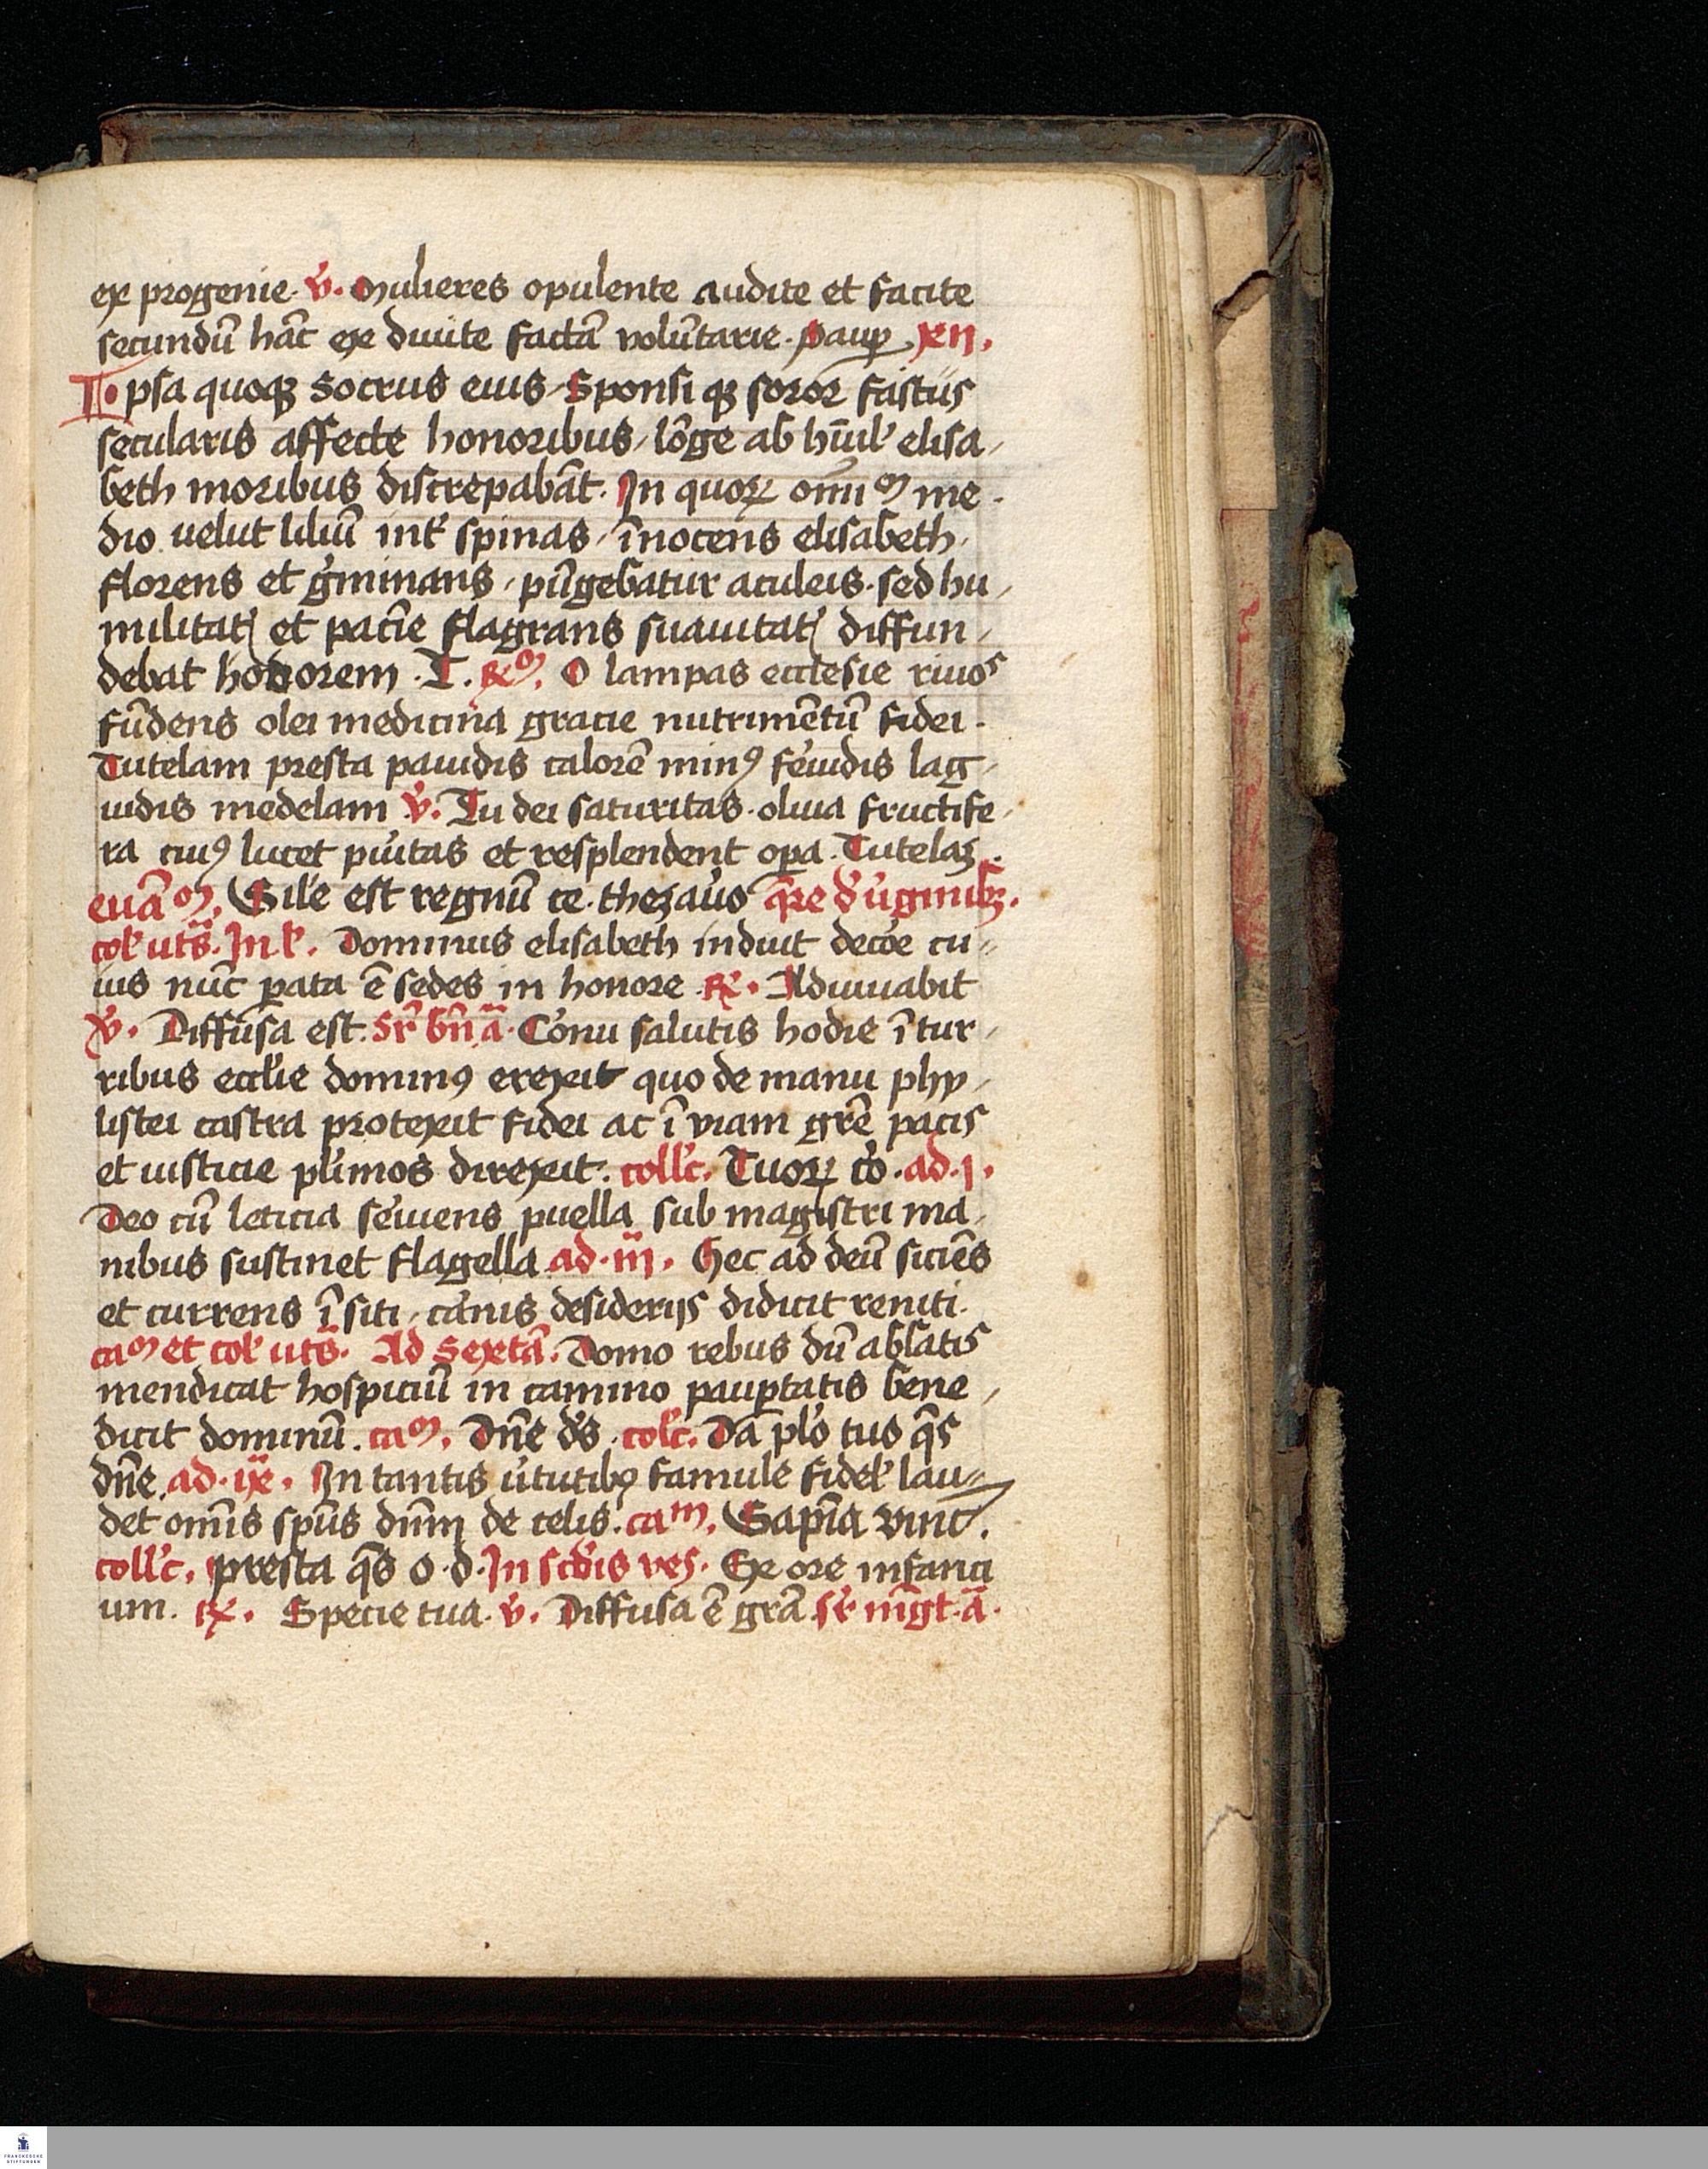 ex progenie. v̓. Mulieres opulente audite et facite
secundū hāc ex diuite factā volūtarie. Paup̲ .xii.
Ipsa quoqꝫ socrus eius Sponsi qꝫ soror fastus
secularis affecte honoribus / lōge ab hūil̓ elisa /
beth moribus discrepabāt. In quoꝝ om̄i ᵐ me -
dio velut liliū int̓ spinas / īnocens elisabeth.
florens et g̓minans / pūgebatur aculeis. sed hu /
militatꝭ et pacīe flagrans suauitatꝭ diffun /
debat honorem. T. ꝶᵐ. O lampas ecclesie riuos
fūdens olei medicina gracie nutrimētū fidei.
Tutelam presta pauidis calorē minꝰ feruidis lag /
uidis medelam v̓. Tu dei saturitas. oliua fructife /
ra cuiꝰ lucet pūitas et resplendent op̲a. Tutelaꝫ.
euāᵐ. Sil̓e est regnū ce. thezaūo q̄re d̓ v̓ginibꝫ.
col̓ uts̄. In l̓. Dominus elisabeth induit decoe cu //
ius nūc p̲ata ē sedes in honore ꝶ. Adiuuabit
v̓. Diffusa est. Sr̄ bn̄ ā. Cōnu salutis hodie ī tur /
ribus eccl̓ie dominꝰ erexit quo de manu phy /
listei castra protexit fidei ac ī viam grē pacis
et iusticie pl̓imos direxit. coll̓c. Tuoꝝ c̄o. ad. j.
Deo cū leticia s̓euiens puella sub magistri ma /
nibus sustinet flagella ad. iij. Hec ad deū siciēs
et currens ī siti / ca̓nis desiderijs didicit reniti.
caᵐ et col̓ uts̄. Ad Sextā. Domo rebus dū ablatis
mendicat hospiciū in camino paup̲tatis bene /
dicit dominū. caᵐ. Dn̄e d̓s. col̓c. Da pl̓o tuo q̄s
dn̄e. ad. ix. In tantis v̓tutibꝰ famule fidel̓ lau //
det om̄is sp̄us dn̄m de celis. caᵐ. Sapīa vinc̄.
coll̓c. presta q̄s o. d. In scd̓is ves. Ex ore infanci
um. ꝶ. Specie tua. v̓. Diffusa ē grā. Sr̄ mḡt. ā.
FRANCKESCHE
STIFTUNGEN